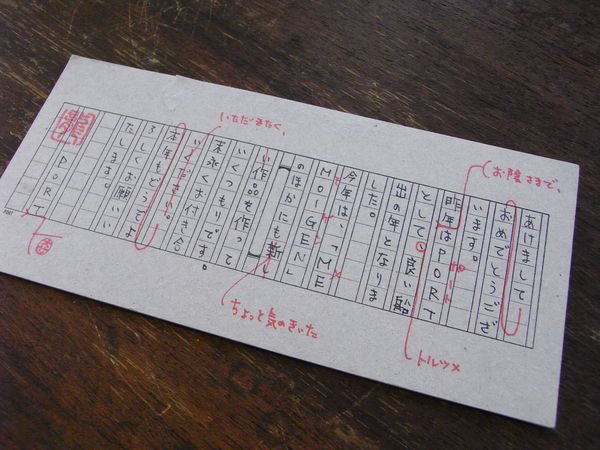 あけまして
おめでとうござ
います。
お陰さまで、
昨年はPORT
ポート
として、良い船
トルツメ
出の年となりま
した。
今年は、「ME
MO-GEN」
のほかにも新し
ちょっと気のきいた
い作品を作って
いくつもりです。
末永くお付き合
いください。
いただきたく、
本年もどうぞよ
ろしくお願いい
たします。
PORT